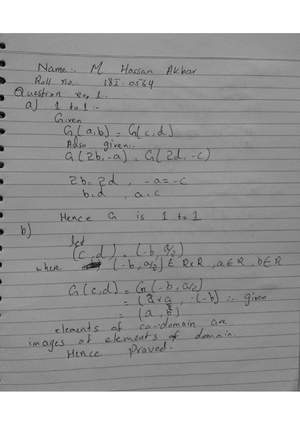 Name:. M Hassan Akbar
Roll no. 18I-0564
Question no, 1.
a) 1 to 1:-
Given
G(a,b) = G(c,d)
Also given:.
G(2b,-a) = G(2d,-c)
2b=2d , -a=-c
b=d , a=c
Hence G is 1 to 1
b)
let
(c,d) = (-b, a/2)
where (-b, a/2) ∈ R×R, a∈R, b∈R
G(c,d) = G(-b, a/2)
= (2×a , -(-b) ∴ given
= (a, b)
elements of co-domain are
images of elements of domain.
Hence Proved.